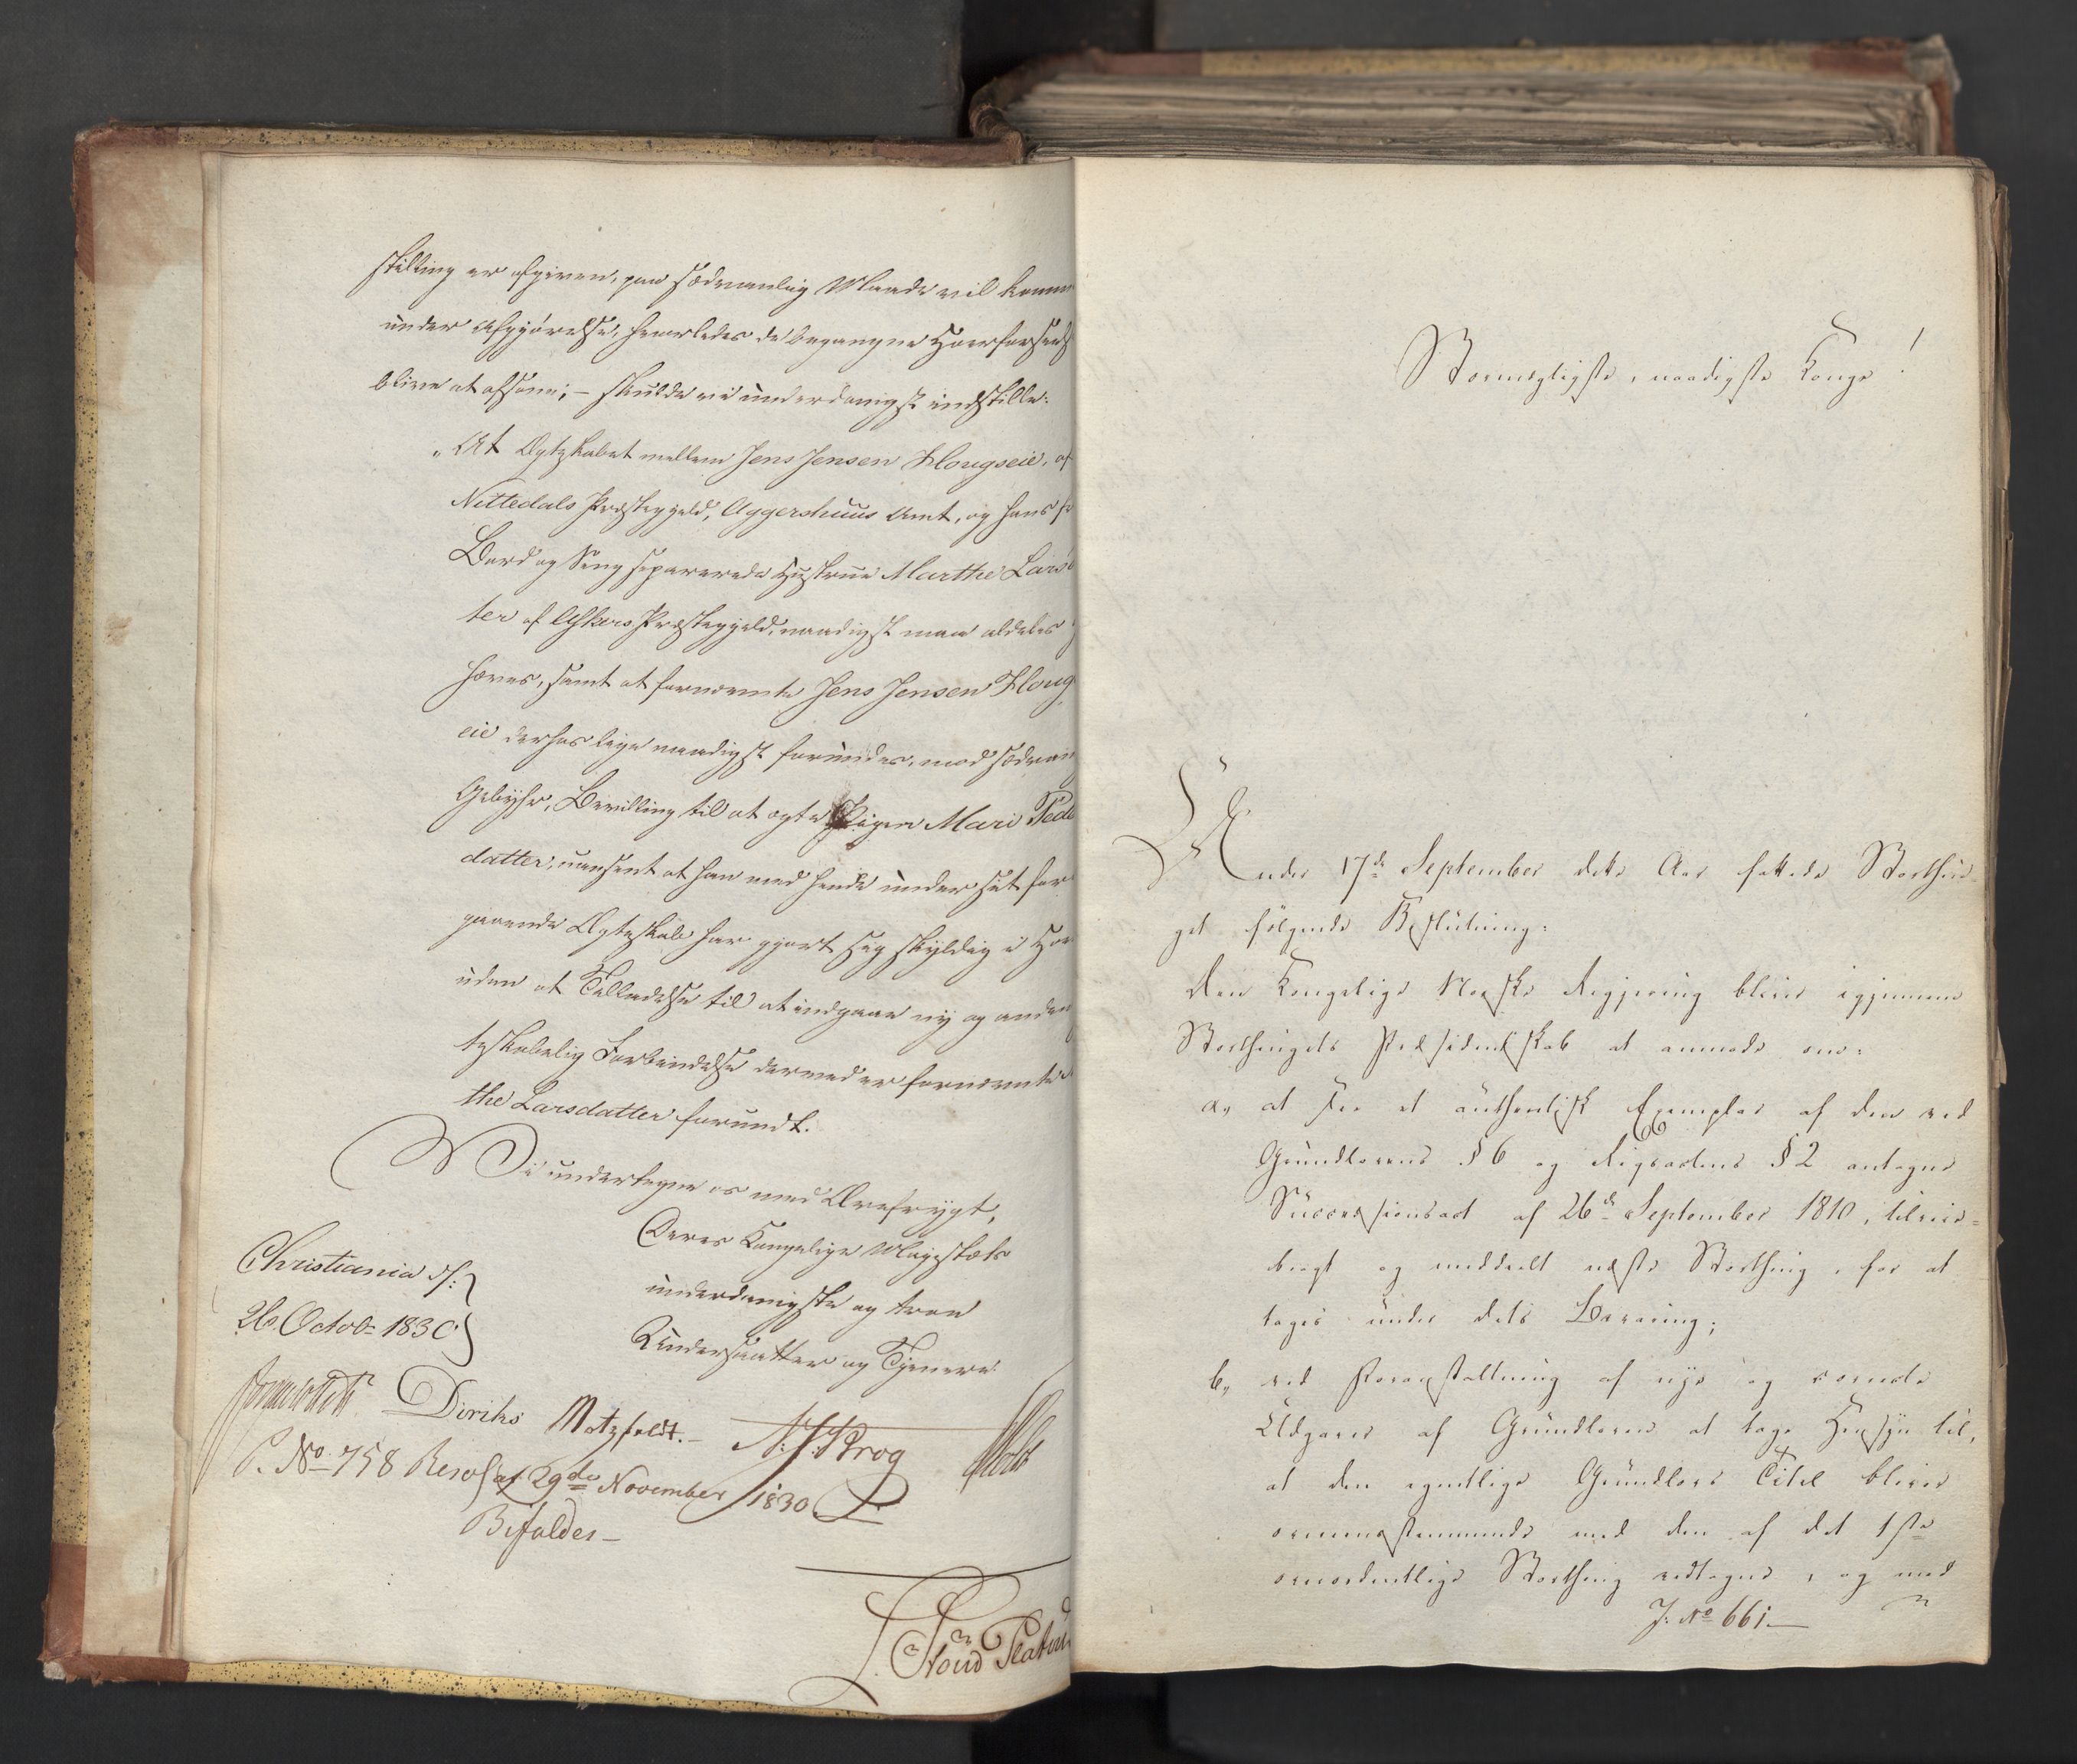 stilling er afgiven, paa sædvanlig Maade vil komme
under Afgjørelse, hvorledes de begangne Hoerforseels
blive at afsone; – skulde vi underdanigst indstille:
„At Ægteskabet mellem Jens Jensen Hougseie, af
Nittedals Præstegjeld, Aggershuus Amt, og hans fr
Bord og Seng separerede Hustrue Marthe Larsd
ter af Askers Præstegjeld, naadigst maa aldeles
hæves, samt at fornævnte Jens Jensen Houg
eie derhos lige naadigst forundes, mod sædvan
Gebyhr, Bevilling til at ægte Pigen Mari Pede
datter, uanseet at han med hende under sit for
gaaende Ægteskab har gjort sig skyldig i Hor
uden at Tilladelse til at indgaae ny og anden
teskabelig Forbindelse dermed er fornævnte
the Larsdatter forundt.
Vi undertegne os med Ærefrygt,
Christiania d:
Deres Kongelige Majestæts
26 Octob: 1830
underdanigste og troe
Undersaatter og Tjenere
Diriks Motzfeldt. – Krog Holst
P. No 758 Resol: af 29de November 1830
Bifaldes –
Stormægtigste, naadigste Konge!
Under 17de September dette Aar fattede Storthin-
get følgende Beslutning:
Den Kongelige Norske Regjering bliver igjennem
Storthingets Præsidentskab at anmode om:
a,, at see et authentisk Exemplar af den ved
Grundlovens § 6 og Rigsactens § 2 antagne
Successionsact af 26de September 1810, tilveie-
bragt og meddeelt næste Storthing, for at
tages under dets Bevaring;
b,, ved Foranstaltning af nye og &c &c
Udgaver af Grundloven at tage Hensyn til,
at den egentlige Grundlovs Titel bliver
overeensstemmende med den af det 1ste
overordentlige Storthing vedtagne, og med
J. No 661. –